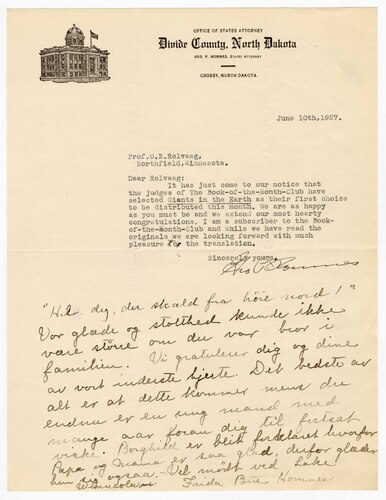 OFFICE OF STATES ATTORNEY
Divide County, North Dakota
GEO. P. HOMNES, STATES ATTORNEY
CROSBY, NORTH DAKOTA
June 10th,1927.
Prof.O.E.Rolvaag,
Northfield,Minnesota.
Dear Rolvaag:
It has just come to our notice that
the judges of The Book-of-the-Month-Club have
selected Giants in the Earth as their first choice
to be distributed this month. We are as happy
as you must be and we extend our most hearty
congratulations. I am a subscriber to the Book-
of-the-Month-Club and while we have read the
originals we are looking forward with much
pleasure for the translation.
Sincerely yours,
Geo P Homnes
"Hil dig, du skald fra höie nord!"
Vor glæde og stolthed kunde ikke
være större om du var bror i
familien. Vi gratulerer dig og dine
av vort inderste hjerte. Det bedste av
alt er at dette kommer mens du
endnu er en ung mand med
mange aar foran dig til fortsat
virke. Borghild er blit forklaret hvorfor
Papa og Mama er saa glad, derfor glæder
hun sig ogsaa. Vel mödt ved Lake
Frida Bue Homnes